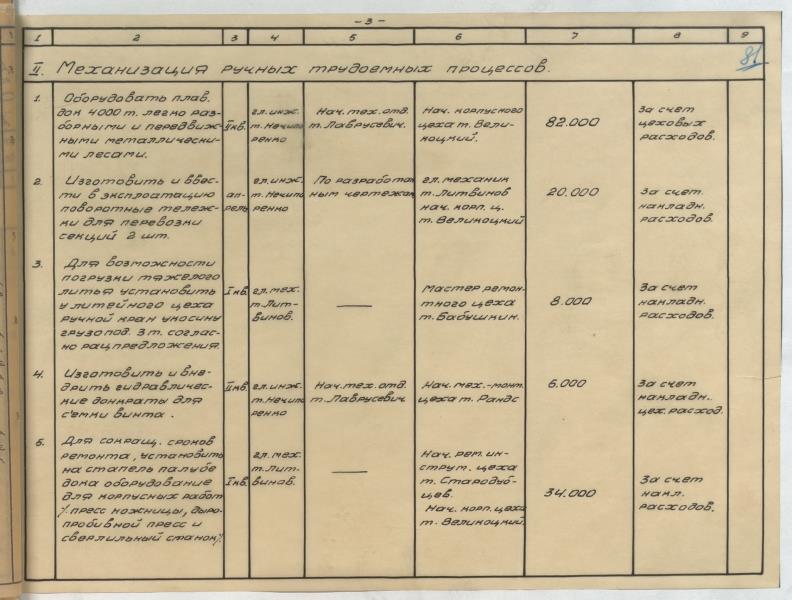 - 3 -
1 2 3 4 5 6 7 8 9
81
II. Механизация ручных трудоемных процессов.
1. Оборудовать плав.
док 4000 т. легко раз-
борными и передвиж-
ными металлически-
ми лесами.
II кв.
гл. инж.
т. Нечипо
ренко
Нач. тех. отд.
т. Лаврусевич.
Нач. корпусного
цеха т. Вели-
коцкий.
82.000
За счет
цеховых
расходов.
2. Изготовить и ввес-
ти в эксплоатацию
поворотные тележ-
ки для перевозки
секций 2 шт.
ап-
рель
гл. инж.
т. Нечипо
ренко
По разработан
ным чертежам
гл. механик
т. Литвинов
нач. корп. ц.
т. Великоцкий
20.000
За счет
накладн.
расходов.
3. Для возможности
погрузки тяжелого
литья установить
у литейного цеха
ручной кран укосину
грузопод. 3 т. соглас-
но рацпредложения.
I кв.
гл. мех.
т. Лит-
винов.
—
Мастер ремон-
тного цеха
т. Бабушкин.
8.000
За счет
накладн.
расходов.
4. Изготовить и вне-
дрить гидравличес-
кие домкраты для
с'емки винта.
II кв.
гл. инж.
т. Нечипо
ренко
Нач. тех. отд.
т. Лаврусевич
Нач. мех.-монт.
цеха т. Рандс
6.000
За счет
накладн.
цех. расход.
5. Для сокращ. сроков
ремонта, установить
на стапель палубе
дока оборудование
для корпусных работ
/. пресс ножницы, дыро-
пробивной пресс и
сверлильный станок/.
I кв.
гл. мех.
т. Лит-
винов.
—
Нач. рем. ин-
струм. цеха
т. Стародуб-
цев.
Нач. корп. цеха
т. Великоцкий.
34.000
За счет
накл.
расходов.